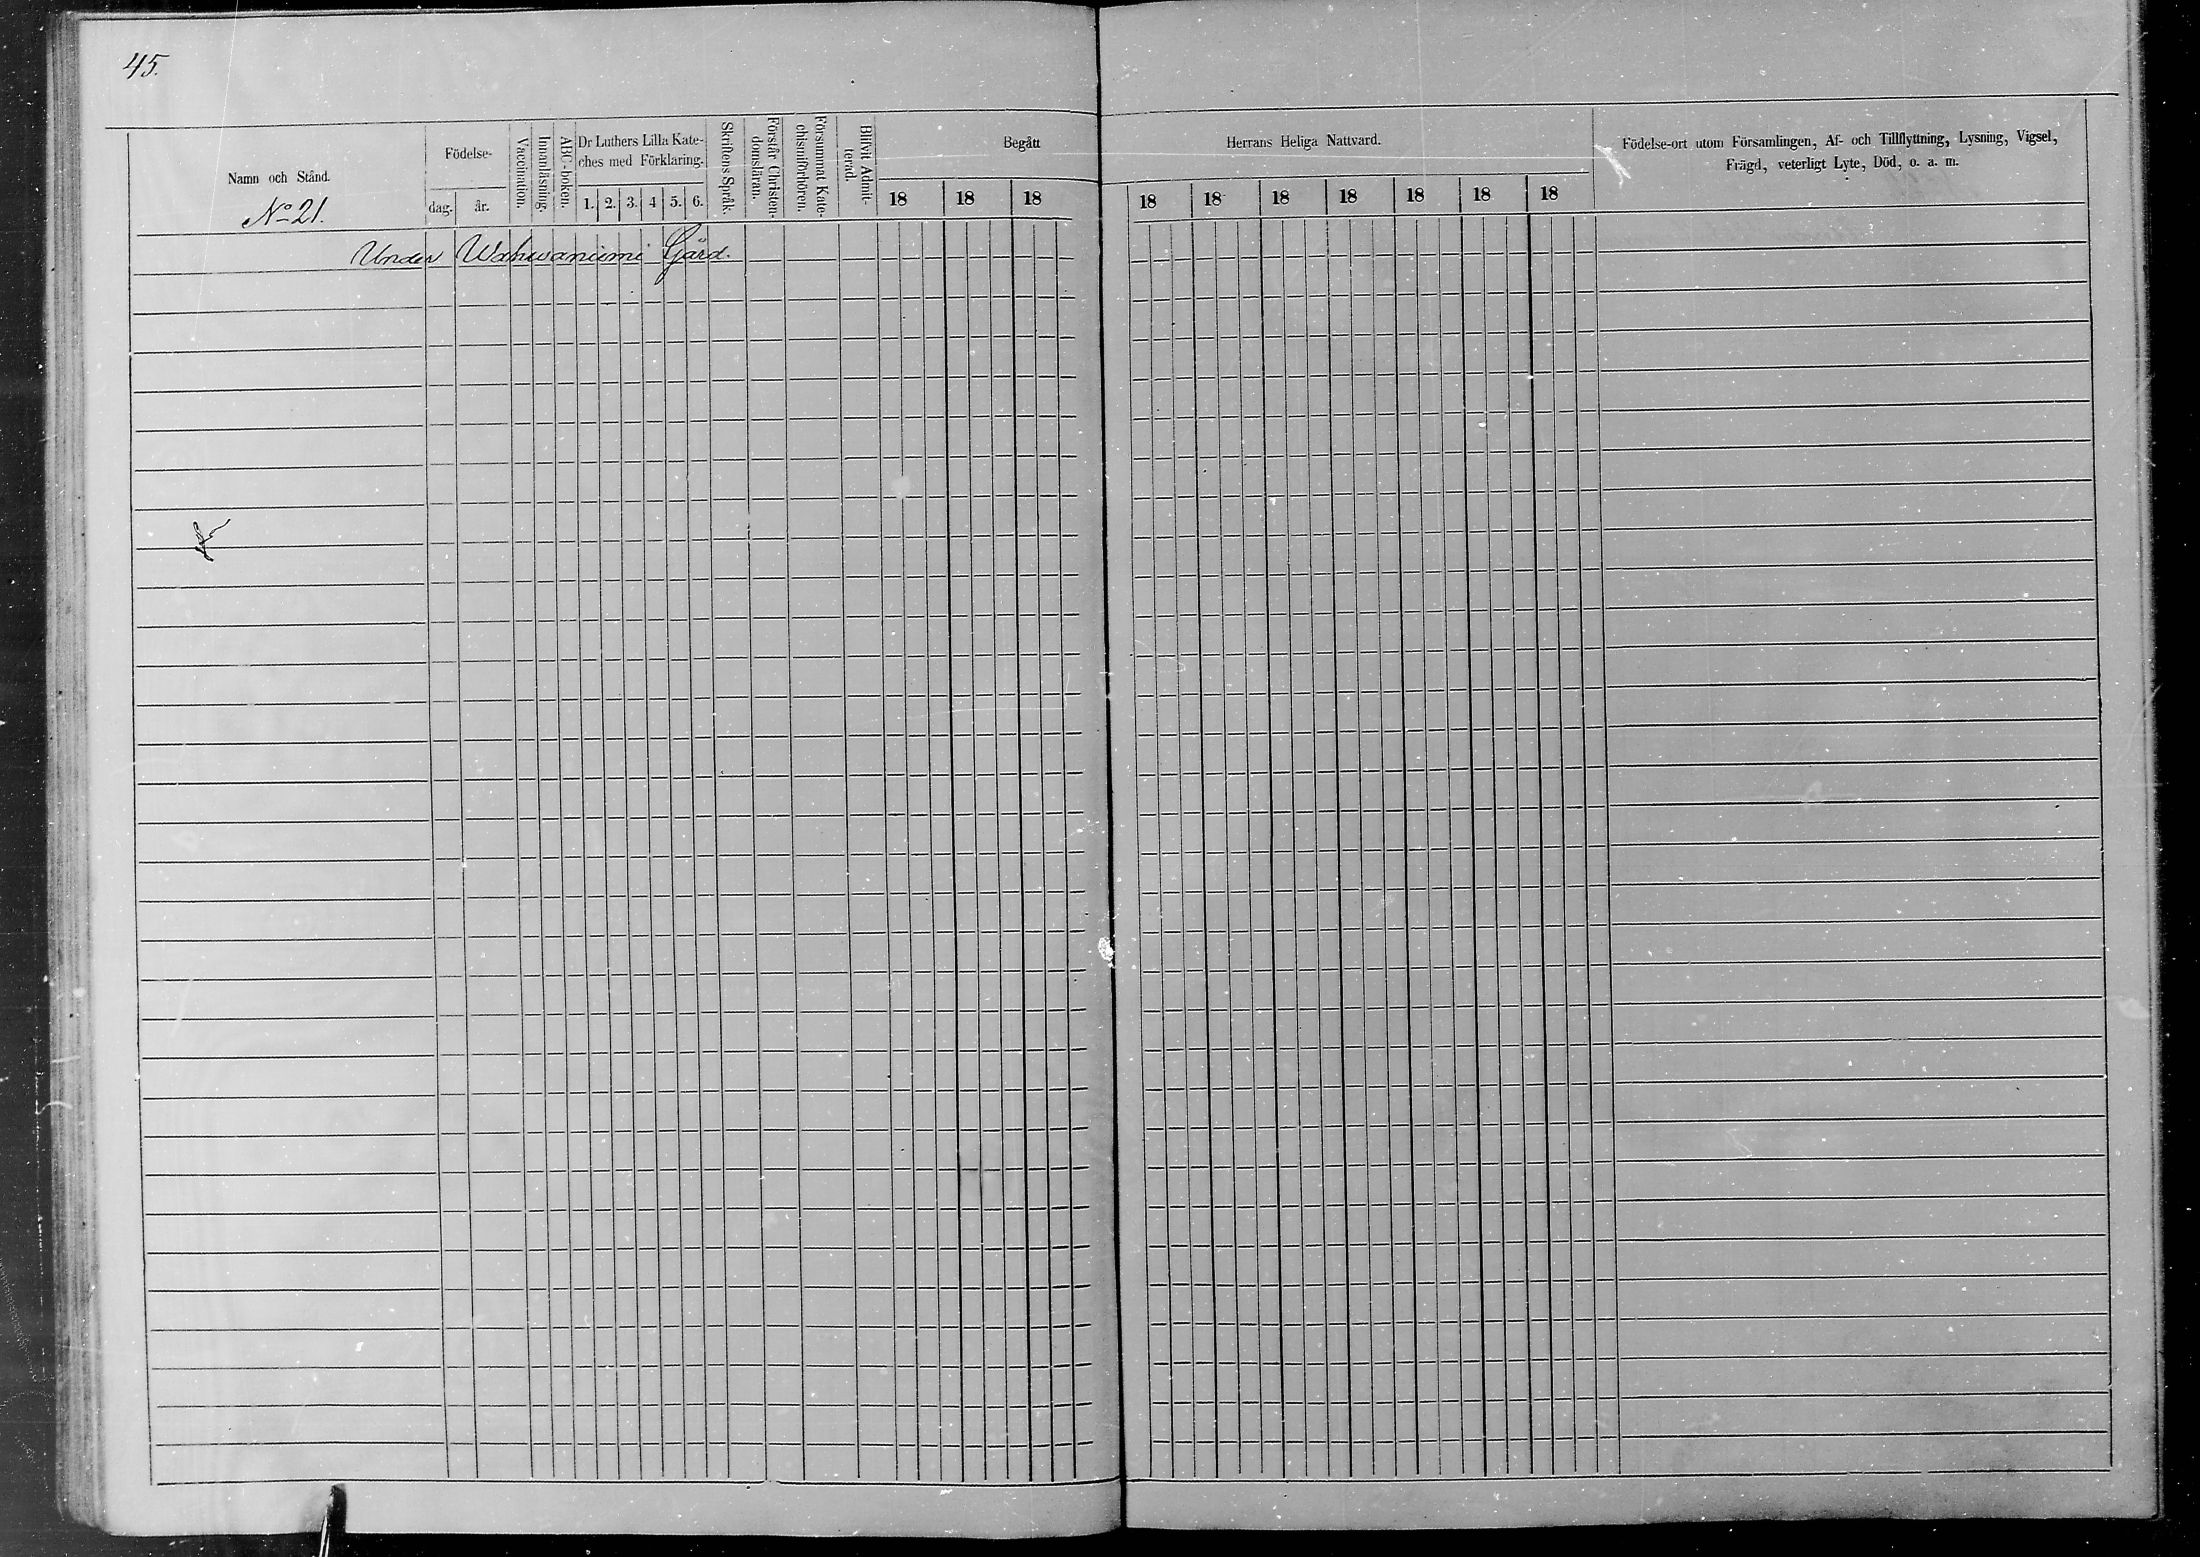 45.
Namn och Stånd.
No 21.
Födelse-
dag.
år.
Vaccination.
Innanläsning.
ABC-boken.
Dr Luthers Lilla Kate-
ches med Förklaring.
1. 2. 3. 4 5. 6.
Skriftens Språk.
Förstår Christen-
domsläran.
Försummat Kate-
chismiförhören.
Blifvit Admit-
terad.
Begått
18 18 18
Herrans Heliga Nattvard.
18 18 18 18 18 18 18
Födelse-ort utom Församlingen, Af- och Tillflyttning, Lysning, Vigsel,
Frägd, veterligt Lyte, Död, o. a. m.
Under Wahwaniemi Gård.